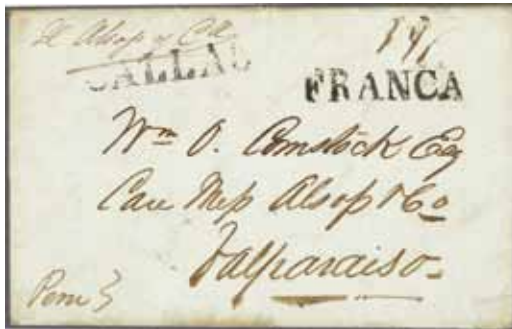 Alsop y Ca
CALLAO
FRANCA
Wm O. Comstock Esq
Care Mess Alsop & Co
Valparaiso
Peru